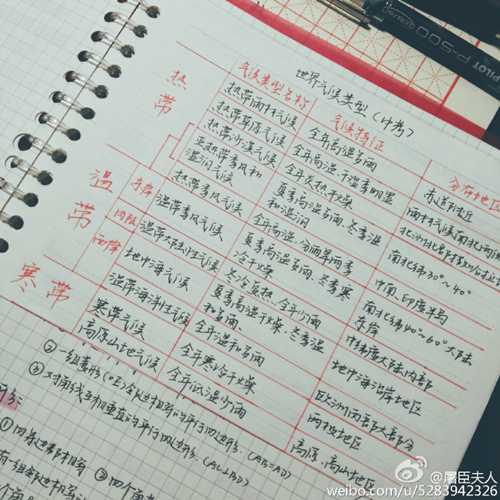 世界气候类型（中考）
气候类型名称 气候特征 分布地区
热带
热带雨林气候 全年高温多雨 赤道附近
热带草原气候 全年高温,干湿季明显
热带沙漠气候 全年炎热干燥
亚热带季风和湿润气候 夏季高温多雨、冬季温和湿润
热带季风气候 全年高温,分雨旱两季 中南、印度半岛
南北纬30°~40°
温带
东岸 温带季风气候 夏季高温多雨、冬季寒冷干燥 南北纬40°~60°大陆东岸
内陆 温带大陆性气候 冬冷夏热,全年少雨 中纬度大陆内部
西岸 地中海气候 夏季高温干燥、冬季温和多雨 地中海沿岸地区
温带海洋性气候 全年温和多雨 欧洲西部大部分
寒带
寒带气候 全年寒冷干燥 两极地区
高原山地气候 全年低温少雨 高原、高山地区
② 一组菱形
③ 对角线互相垂直的平行四边形
① 四条边都相等
@屠臣夫人
weibo.com/u/5283942326
PILOT P-500